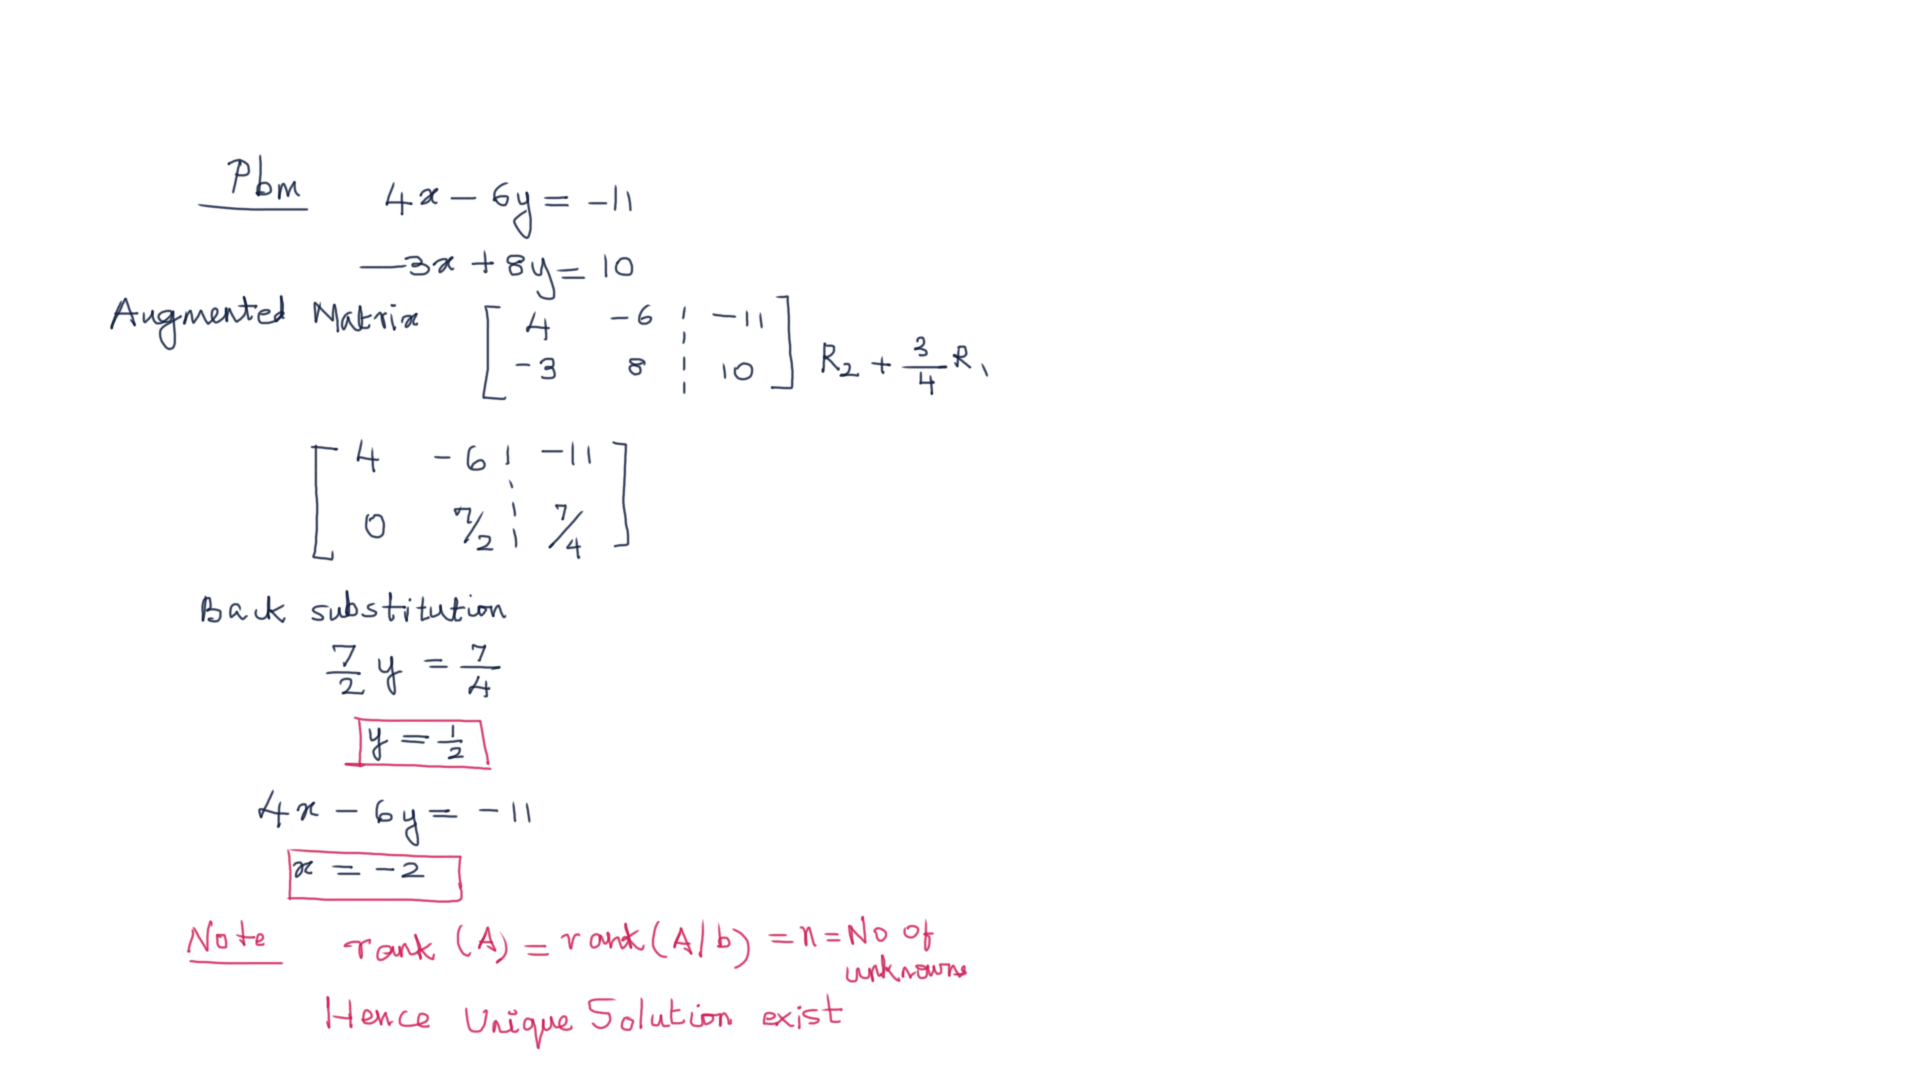 Pbm 4x - 6y = -11
-3x + 8y = 10
Augmented Matrix [ 4 -6 ¦ -11 ]
[ -3 8 ¦ 10 ] R2 + 3/4 R1
[ 4 -6 ¦ -11 ]
[ 0 7/2 ¦ 7/4 ]
Back substitution
7/2 y = 7/4
y = 1/2
4x - 6y = -11
x = -2
Note rank (A) = rank (A/b) = n = No of
unknowns
Hence Unique Solution exist